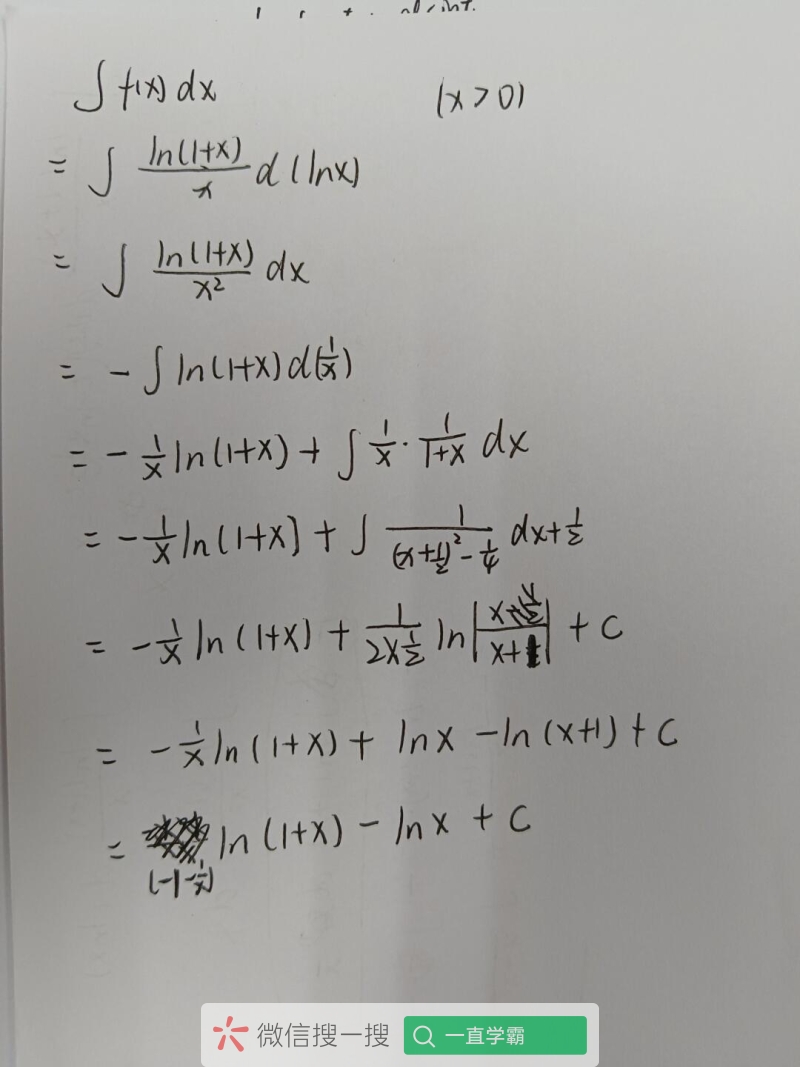 ∫ f(x) dx (x > 0)
= ∫ ln(1+x)/x d(lnx)
= ∫ ln(1+x)/x² dx
= - ∫ ln(1+x) d(1/x)
= - 1/x ln(1+x) + ∫ 1/x · 1/(1+x) dx
= - 1/x ln(1+x) + ∫ 1/((x+1/2)² - 1/4) dx+1/2
= - 1/x ln(1+x) + 1/(2×1/2) ln|x/(x+1)| + C
= - 1/x ln(1+x) + lnx - ln(x+1) + C
= (-1-1/x) ln(1+x) - lnx + C
微信搜一搜 一直学霸